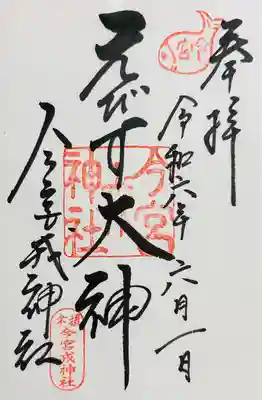 奉拝
令和六年六月一日
えびす大神
今宮戎神社
今宮
神社
今宮戎神社